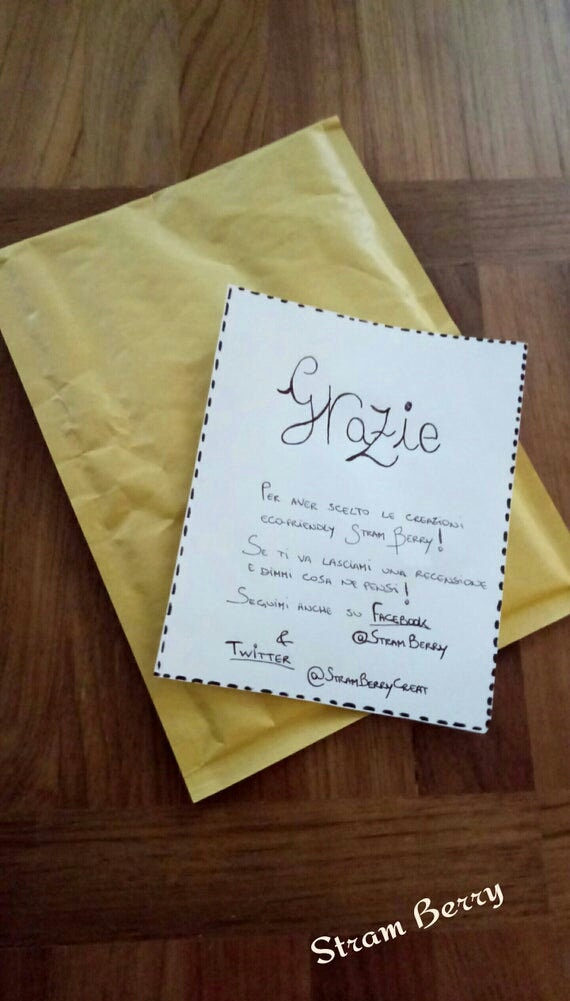 Grazie
Per aver scelto le creazioni
ecofriendly Stram Berry!
Se ti va lasciami una recensione
e dimmi cosa ne pensi!
Seguimi anche su Facebook
@StramBerry
&
Twitter
@StramBerryCreat
Stram Berry